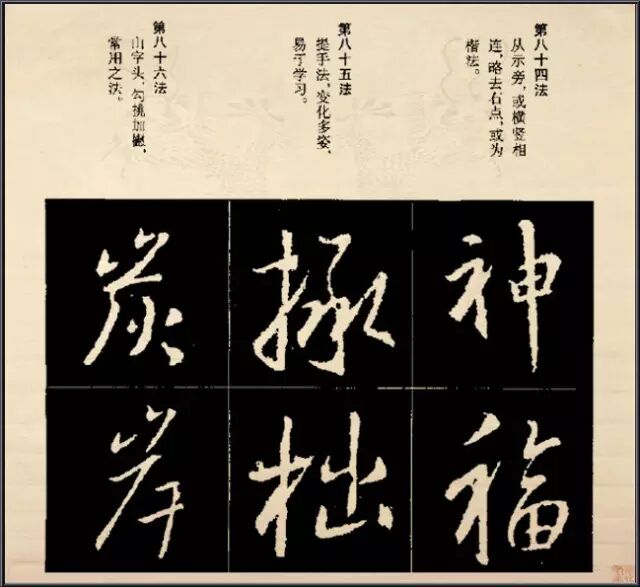 第八十四法
从示旁，或横竖相
连，略去右点，或为
楷法。
第八十五法
提手法，变化多姿，
易于学习。
第八十六法
山字头，勾挑加撇，
常用之法。
神
福
拙
炭
岸